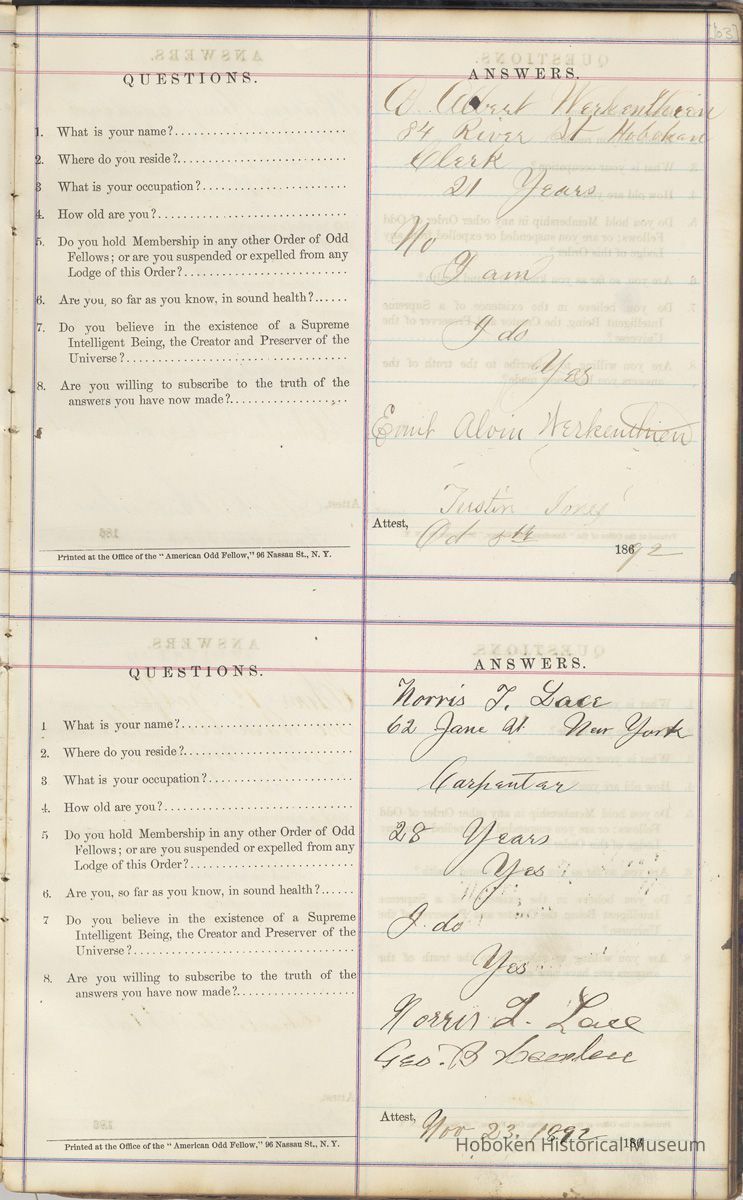 [63]
QUESTIONS.
ANSWERS.
1. What is your name?
Albert Werkenthein
2. Where do you reside?
84 River St Hoboken
3 What is your occupation?
Clerk
4. How old are you?
21 Years
5. Do you hold Membership in any other Order of Odd
Fellows; or are you suspended or expelled from any
Lodge of this Order?
No
6. Are you, so far as you know, in sound health?
I am
7. Do you believe in the existence of a Supreme
Intelligent Being, the Creator and Preserver of the
Universe?
I do
8. Are you willing to subscribe to the truth of the
answers you have now made?
Yes
Alvin Werkenthien
Jones
Attest,
8th
18692
Printed at the Office of the "American Odd Fellow," 96 Nassau St., N. Y.
QUESTIONS.
ANSWERS.
1 What is your name?
Norris T. Lace
2. Where do you reside?
62 Jane St New York
3 What is your occupation?
Carpenter
4. How old are you?
28 Years
5 Do you hold Membership in any other Order of Odd
Fellows; or are you suspended or expelled from any
Lodge of this Order?
6. Are you, so far as you know, in sound health?
Yes
7 Do you believe in the existence of a Supreme
Intelligent Being, the Creator and Preserver of the
Universe?
I do
8. Are you willing to subscribe to the truth of the
answers you have now made?
Yes
Norris T. Lace
Geo. B
Attest,
Nov 23. 1892 186
Printed at the Office of the "American Odd Fellow," 96 Nassau St., N. Y.
Hoboken Historical Museum